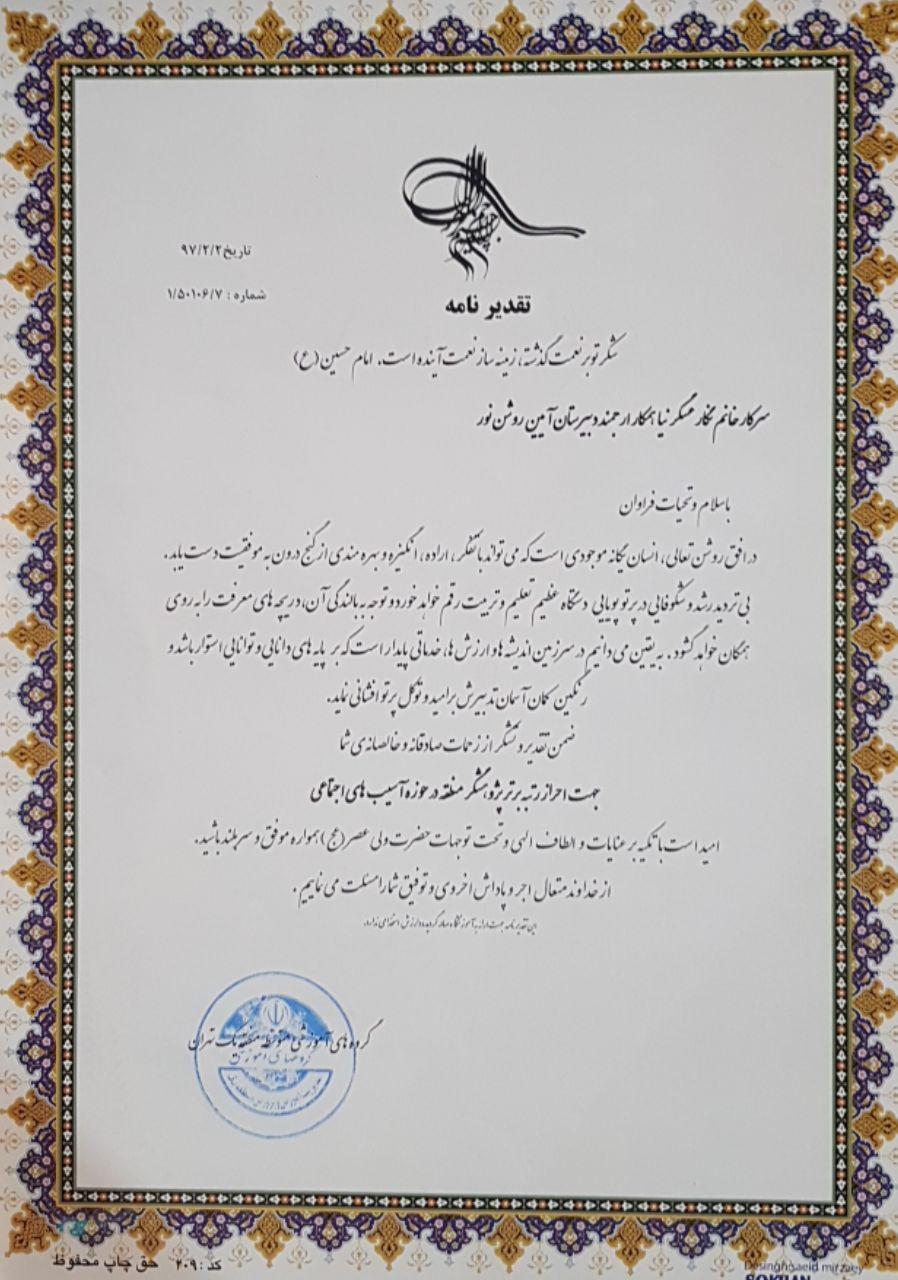 تاریخ ۹۷/۲/۲
شماره : ۱/۵۰۱۰۶/۷
تقدیر نامه
شکر تو بر نعمت گذشته، زمینه ساز نعمت آینده است. امام حسین (ع)
سرکار خانم نگار عسگر نیا همکار ارجمند دبیرستان آیین روشن نور
باسلام و تحیات فراوان
در افق روشن تعالی، انسان یگانه موجودی است که می تواند با تفکر، اراده، انگیزه و بهره مندی از گنج درون به موفقیت دست یابد.
بی تردید رشد و شکوفایی در پرتو پویایی دستگاه عظیم تعلیم و تربیت رقم خواهد خورد و توجه به بالندگی آن، دریچه های معرفت را به روی
همگان خواهد گشود. به یقین می دانیم در سرزمین اندیشه ها و ارزش ها، خدماتی پایدار است که بر پایه های دانایی و توانایی استوار باشد و
رنگین کمان آسمان تدبیرش بر امید و توکل پرتو افشانی نماید.
ضمن تقدیر و تشکر از زحمات صادقانه و خالصانه ی شما
جهت احراز رتبه برتر پژوهشگر منطقه در حوزه آسیب های اجتماعی
امید است با تکیه بر عنایات و الطاف الهی و تحت توجهات حضرت ولی عصر (عج) همواره موفق و سربلند باشید.
از خداوند متعال اجر و پاداش اخروی و توفیق شما را مسئلت می نماییم.
این تقدیر نامه جهت ارائه به آموزشگاه صادر گردیده و ارزش استخدامی ندارد.
گروه های آموزشی متوسطه منطقه یک تهران
گروههای آموزشی
کد : ۲۰۹ حق چاپ محفوظ
Desing:saeid mirzaey